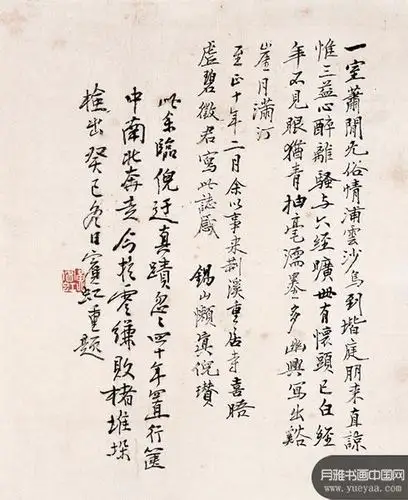 一室蕭閒无俗情浦雲沙鳥到堦庭朋來直諒
惟三益心醉離騷与六經曠世有懷頭已白經
年不見眼猶青抽毫濡墨多幽興寫出谿
崖月滿汀
至正十年二月余以事來荆溪重居寺喜晤
虛碧徵君寫此誌感 錫山懶真倪瓚
此余臨倪迂真蹟忽忽四十年置行篋
中南北奔走今於零縑敗楮堆垛
檢出癸巳冬日賓虹重題
月雅书画中国网
www.yueyaa.com